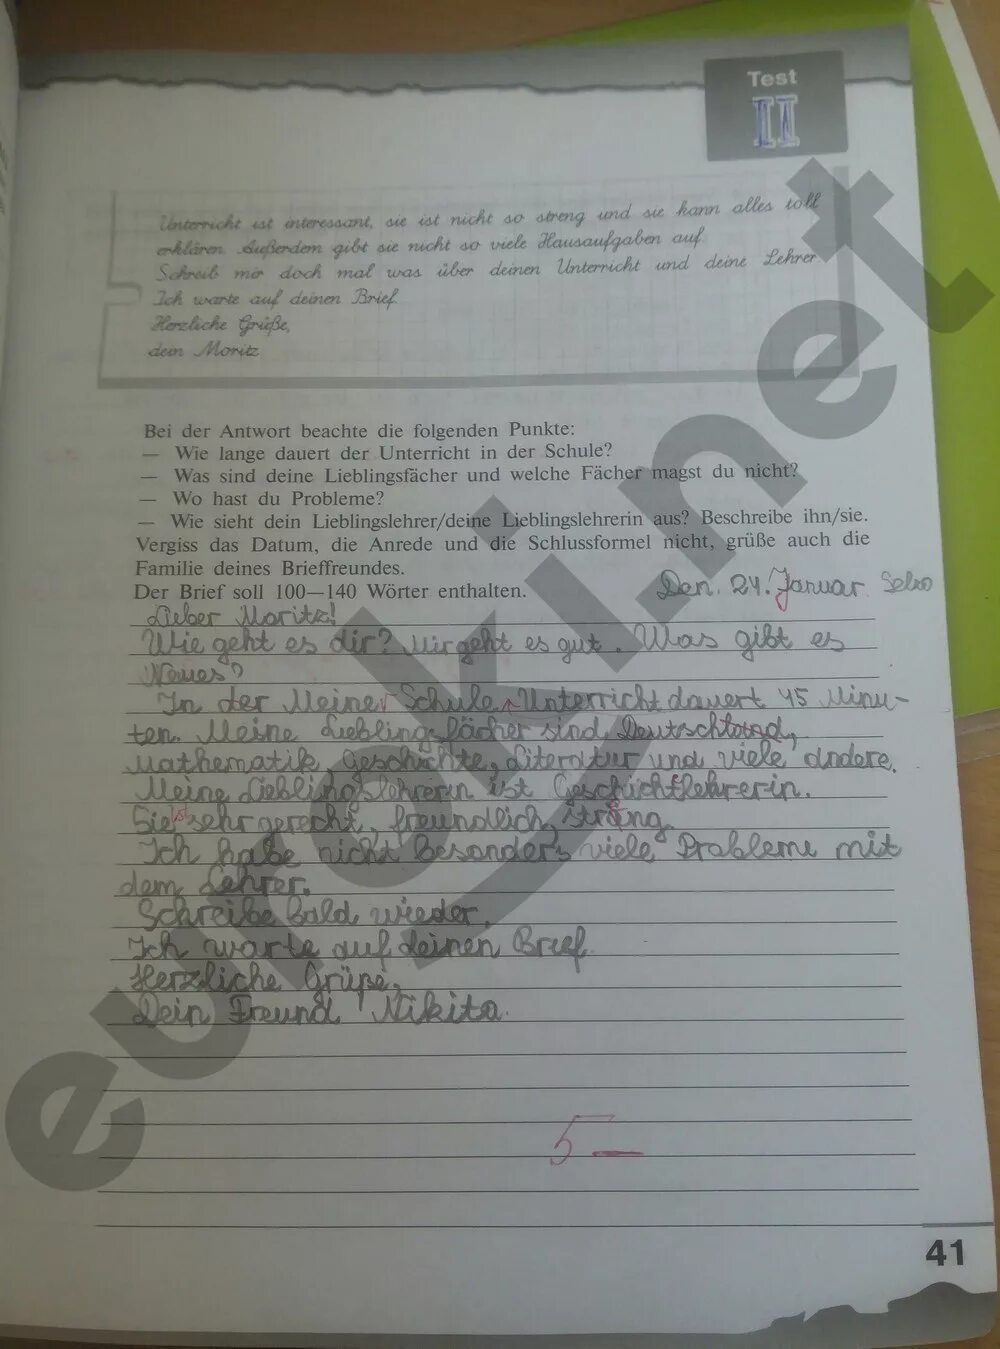 Test
II
Unterricht ist interessant, sie ist nicht so streng und sie kann alles toll
erklären. Außerdem gibt sie nicht so viele Hausaufgaben auf.
Schreib mir doch mal was über deinen Unterricht und deine Lehrer.
Ich warte auf deinen Brief.
Herzliche Grüße,
dein Moritz
Bei der Antwort beachte die folgenden Punkte:
— Wie lange dauert der Unterricht in der Schule?
— Was sind deine Lieblingsfächer und welche Fächer magst du nicht?
— Wo hast du Probleme?
— Wie sieht dein Lieblingslehrer/deine Lieblingslehrerin aus? Beschreibe ihn/sie.
Vergiss das Datum, die Anrede und die Schlussformel nicht, grüße auch die
Familie deines Brieffreundes.
Der Brief soll 100—140 Wörter enthalten.
Den. 24. Januar
Lieber Moritz!
Wie geht es dir? Mir geht es gut. Was gibt es
Neues?
In der Meine Schule Unterricht dauert 45 Minu-
ten. Meine Lieblingsfächer sind Deutschland,
Mathematik, Geschichte, Literatur und viele andere.
Meine Lieblingslehrerin ist Geschichtlehrerin.
Sie ist sehr gerecht, freundlich, streng.
Ich habe nicht besonders viele Probleme mit
dem Lehrer.
Schreibe bald wieder.
Ich warte auf deinen Brief.
Herzliche Grüße,
Dein Freund Nikita.
5 —
41
eurokinet